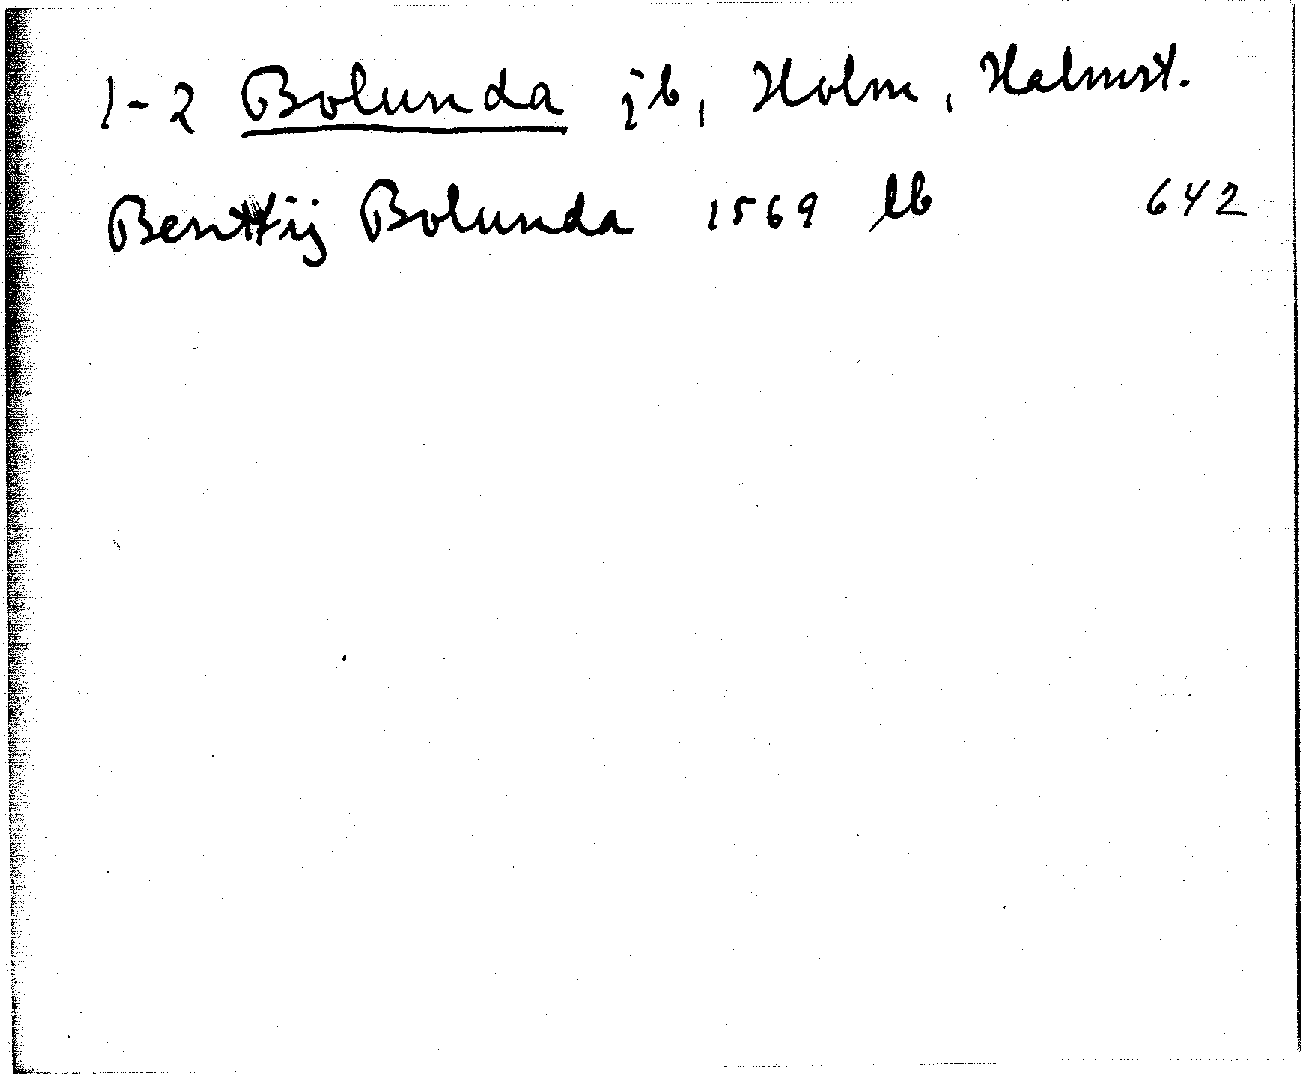 1-2 Bolunda jb, Holm, Halmst.
Benttij Bolunda 1569 lb 642